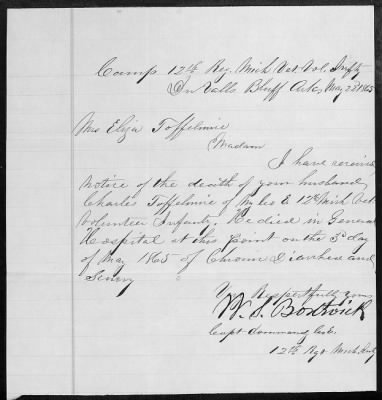 Camp 12th Reg. Mich Vet. Vol. Infty
Du Valls Bluff Ark, May 23 1865
Mrs Eliza Toffelmire
Madam
I have received
notice of the death of your husband
Charles Toffelmire of my Co E 12th Mich Vet
Volunteer Infanty. He died in General
Hospital at this point on the 3d day
of May 1865 of Cronic Diarrhea and
Yr Respectfully yours
W. S. Bostwick
Capt Commandg Co E.
12th Regt Mich. Infty